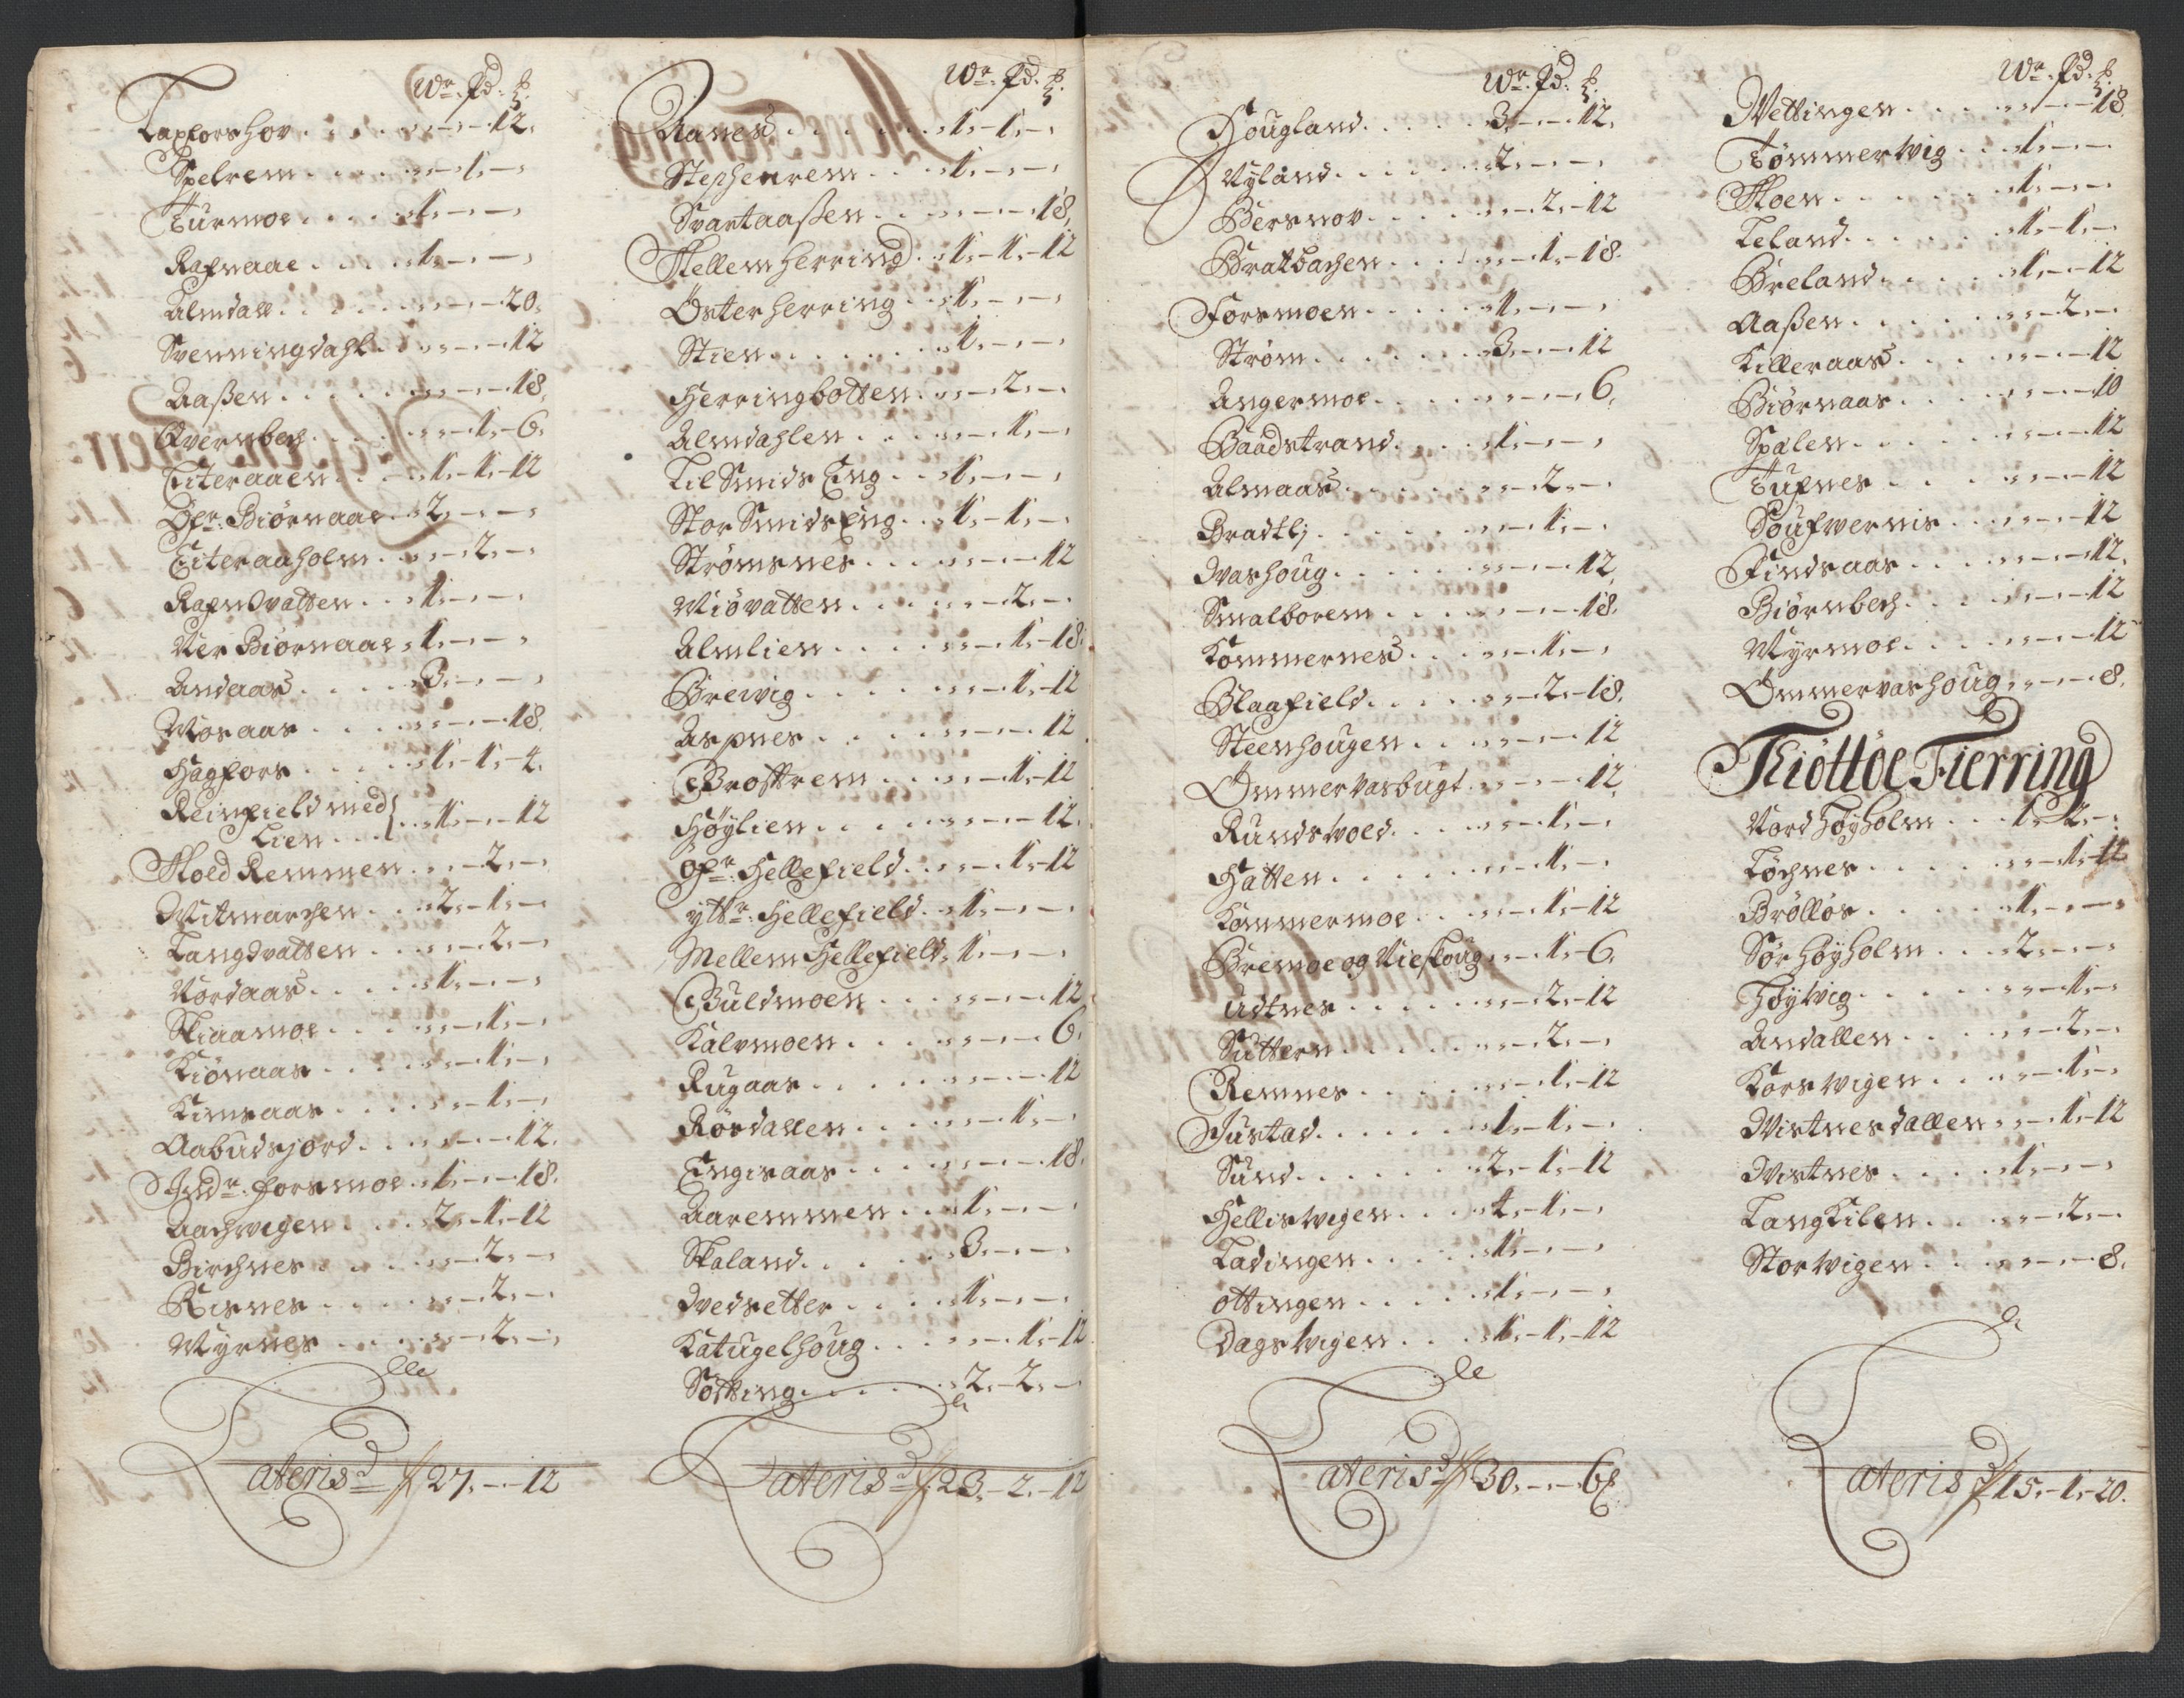 Wr. Pd. ß.
Laxforshov . . . . . " - " - 12.
Spelrem . . . . " - 1. - "
Turmoe . . . . 1. - " - "
Rafnaae . . . . 1. - " - "
Almdall . . . . . " - " - 20.
Svenningdahl . . " - " - 12
Aaßen . . . . . " - " - 18.
Qvernbech . . . . " - 1. - 6.
Eiteraaen . . . 1. - 1. - 12
Øfr. Biørnaae . . 2. - " - "
Eiteraaholm . . " - 2. - "
Rafnsvatten . . 1. - " - "
Ner Biørnaae . 1. - " - "
Andaas . . . . 3. - " - "
Mosaas . . . . " - " - 18.
Hagfors . . . . 1. - 1. - 4.
Reinfield med
Lien . . . } . . 1. - " - 12
Skoed Remmen . . " - 2. - "
Vitmarchen . . 2. - 1. - "
Langsvatten . . " - 2. - "
Nordaas . . . . 1. - " - "
Skiaamoe . . . " - 1. - "
Kiønaas . . . . " - 1. - "
Kimsaas . . . . " - 1. - "
Aabudsjord . . . " - " - 12.
Indr. Forsmoe . 1. - " - 18.
Aachvigen . . . 2. - 1. - 12
Birchnes . . . . " - 2. - "
Risnes . . . . . " - 2. - "
Myrnes . . . . . " - 2. - "
Lateris 27. - " - 12
Wr. Pd. ß.
Ranes . . . . . 1. - 1. - "
Stephenrem . . . 1. - " - "
Svartaaßen . . . " - " - 18.
Mellem herring . 1. - 1. - 12
Østerherring . . 1. - " - "
Stien . . . . . 1. - " - "
Herringbotten . . " - 2. - "
Almdahlen . . . " - 1. - "
Lil Smids Eng . . 1. - " - "
Stor Smids Eng . . 1. - 1. - "
Strømsnes . . . " - " - 12
Miøvatten . . . " - 2. - "
Almlien . . . . " - 1. - 18.
Breivig . . . . " - 1. - 12
Aspnes . . . . " - " - 12
Brostrem . . . " - 1. - 12
Høylien . . . . " - " - 12.
Øfr. Hellefield . . " - 1. - 12
ytr. Hellefield . 1. - " - "
Mellem Hellefield . 1. - " - "
Buldmoen . . . " - " - 12
Kalvmoen . . . " - " - 6.
Rugaas . . . . " - " - 12
Rørdallen . . . " - 1. - "
Engisaas . . . . " - " - 18.
Aaremmen . . . 1. - " - "
Skaland . . . . 3. - " - "
Qvedsetter . . . 1. - " - "
Katugelhoug . . . " - 1. - 12
Søtting . . . . 2. - 2. - "
Lateris 23. - 2. - 12
Wr. Pd. ß.
Hougland . . . . 3. - " - 12.
Nyland . . . . . 2. - " - "
Bersnov . . . . " - 2. - 12
Bratbachen . . . " - 1. - 18.
Forsmoen . . . . 1. - " - "
Strøm . . . . . 3. - " - 12
Angermoe . . . . " - " - 6.
Baadstrand . . . 1. - " - "
Almaas . . . . . " - 2. - "
Bradtlj . . . . " - 1. - "
Washoug . . . . " - " - 12
Smalborem . . . " - " - 18.
Kommernes . . . " - 1. - "
Blaafield . . . . " - 2. - 18.
Steenhougen . . " - " - 12
Ømmervasbugt . " - " - 12.
Rundsvoed . . . " - 1. - "
Hatten . . . . . " - 1. - "
Kommermoe . . " - 1. - 12
Bremoe og Viesloug . " - 1. - 6.
Udtnes . . . . " - 2. - 12
Suttern . . . . " - 2. - "
Remnes . . . . " - 1. - 12
Justad . . . . . 1. - 1. - "
Sund . . . . . 2. - 1. - 12
Hellisvigen . . . 4. - 1. - "
Ladingen . . . . 1. - " - "
Ottingen . . . . 1. - " - "
Dagsvigen . . . 1. - 1. - 12
Lateris 30. - " - 6
Wr. Pd. ß.
Vettingen . . . . " - " - 18.
Tømmervig . . . 1. - " - "
Moen . . . . . 1. - " - "
Leland . . . . . 1. - 1. - "
Breland . . . . 1. - " - 12
Aaßen . . . . . " - 2. - "
Killeraas . . . . " - " - 12
Biørnaas . . . . " - " - 10
Spalen . . . . . " - " - 12
Tufnes . . . . . " - " - 12
Soufvernis . . . " - " - 12
Findsaas . . . . " - " - 12.
Biørnbech . . . " - " - 12
Myrmoe . . . . " - " - 12
Ømmervashoug . " - " - 8.
Thiøttøe Fierring
Nord Høyholm . . 1. - 2. - "
Løchnes . . . . " - 1. - 12
Brølløs . . . . 1. - " - "
Sør Høyholm . . . 2. - " - "
Høyvig . . . . . " - 1. - "
Andallen . . . . " - 2. - "
Korsvigen . . . " - 1. - "
Vistnesdallen . . " - 1. - 12
Vistnes . . . . 1. - " - "
Langkilen . . . " - 2. - "
Storvigen . . . . " - " - 8.
Lateris 15. - 1. - 20.